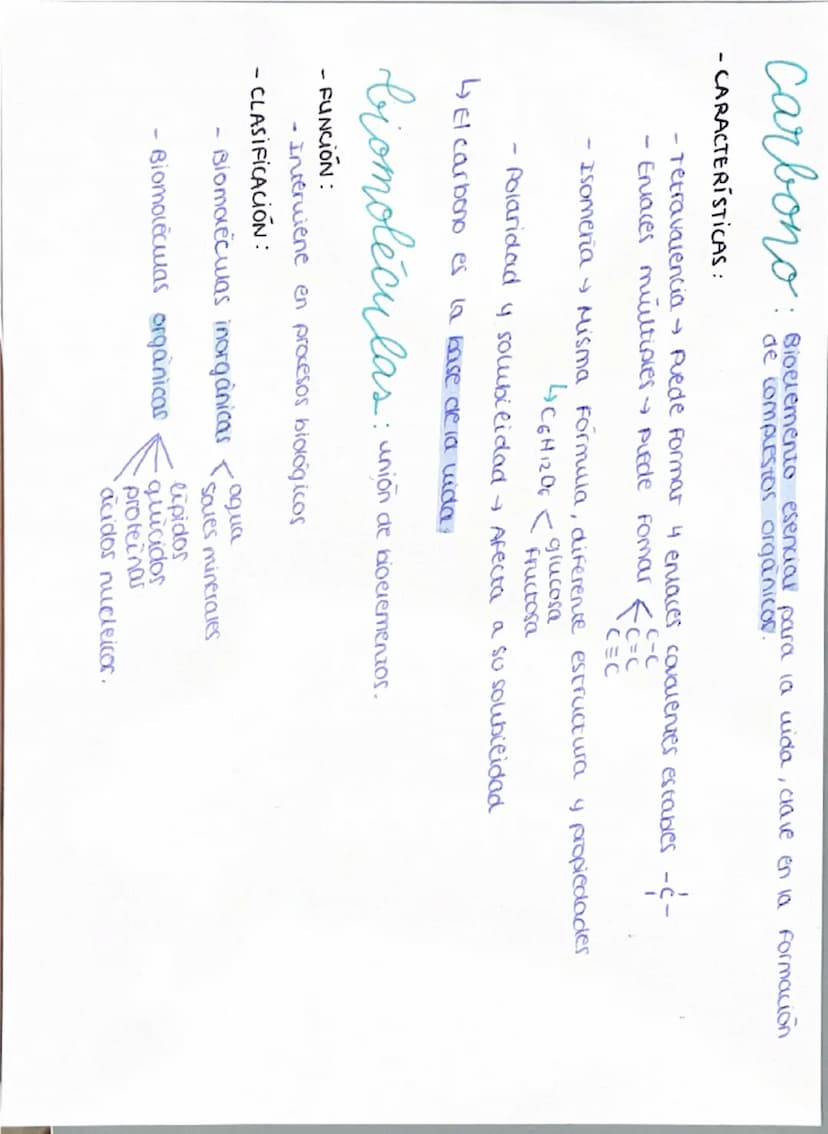 Carbono: Bioelemento esencial para la vida, clave en la formación
de compuestos orgánicos.
- CARACTERÍSTICAS:
- Tetravalencia → Puede formar 4 enlaces covalentes estables -C-
- Enlaces múltiples → Puede fomar C-C
C=C
C≡C
- Isomería → Misma fórmula, diferente estructura y propiedades
↳ C6H12O6 < glucosa
fructosa
- Polaridad y solubilidad → Afecta a su solubilidad
↳ El carbono es la base de la vida.
Biomoléculas: unión de bioelementos.
- FUNCIÓN:
- Interviene en procesos biológicos
- CLASIFICACIÓN:
- Biomoléculas inorgánicas < agua
sales minerales
- Biomoléculas orgánicas lípidos
glúcidos
proteínas
ácidos nucleicos.